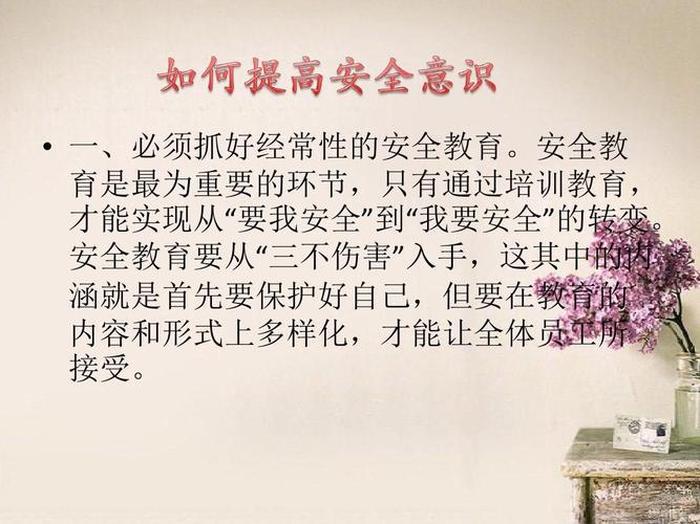 如何提高安全意识
• 一、必须抓好经常性的安全教育。安全教
育是最为重要的环节，只有通过培训教育，
才能实现从“要我安全”到“我要安全”的转变。
安全教育要从“三不伤害”入手，这其中的内
涵就是首先要保护好自己，但要在教育的
内容和形式上多样化，才能让全体员工所
接受。